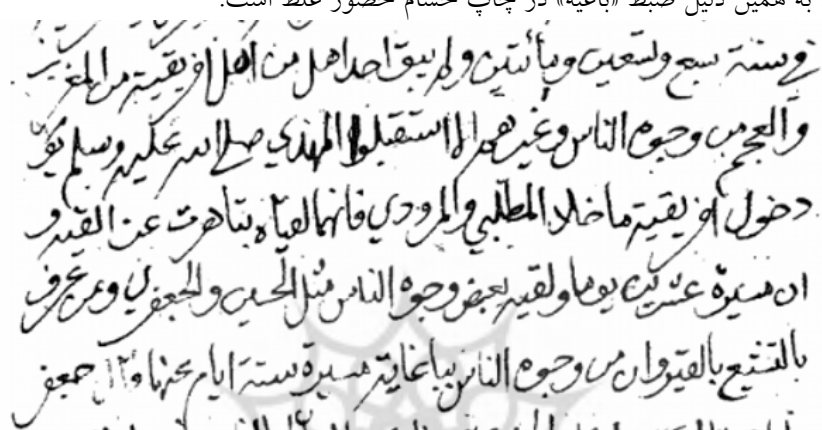 به همین دلیل ضبط «باغیه» در چاپ حسام خضور غلط است.
في سنة سبع وتسعين ومأئتين ولم يبق احدا هل من اهل افريقية من
والعجم من وجوه الناس وغيرهم الا استقبلوا المهدي صلى الله عليه وسلم
دخول افريقية ما خلا المطلبي والمرودي فانهما لقياه بتاهرت عن القيرو
ان مسيرة عشرين يوما ولقيه بعض وجوه الناس مثل الحسين والجعفري ومن عرف
بالتشيع بالقيروان من وجوه الناس بباغاية مسيرة ستة ايام جعفر